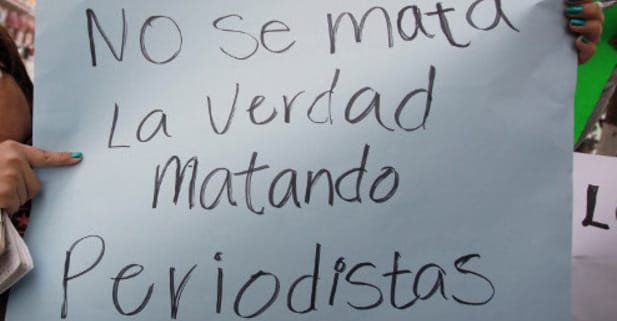 No Se mata
La Verdad
matando
Periodistas
L